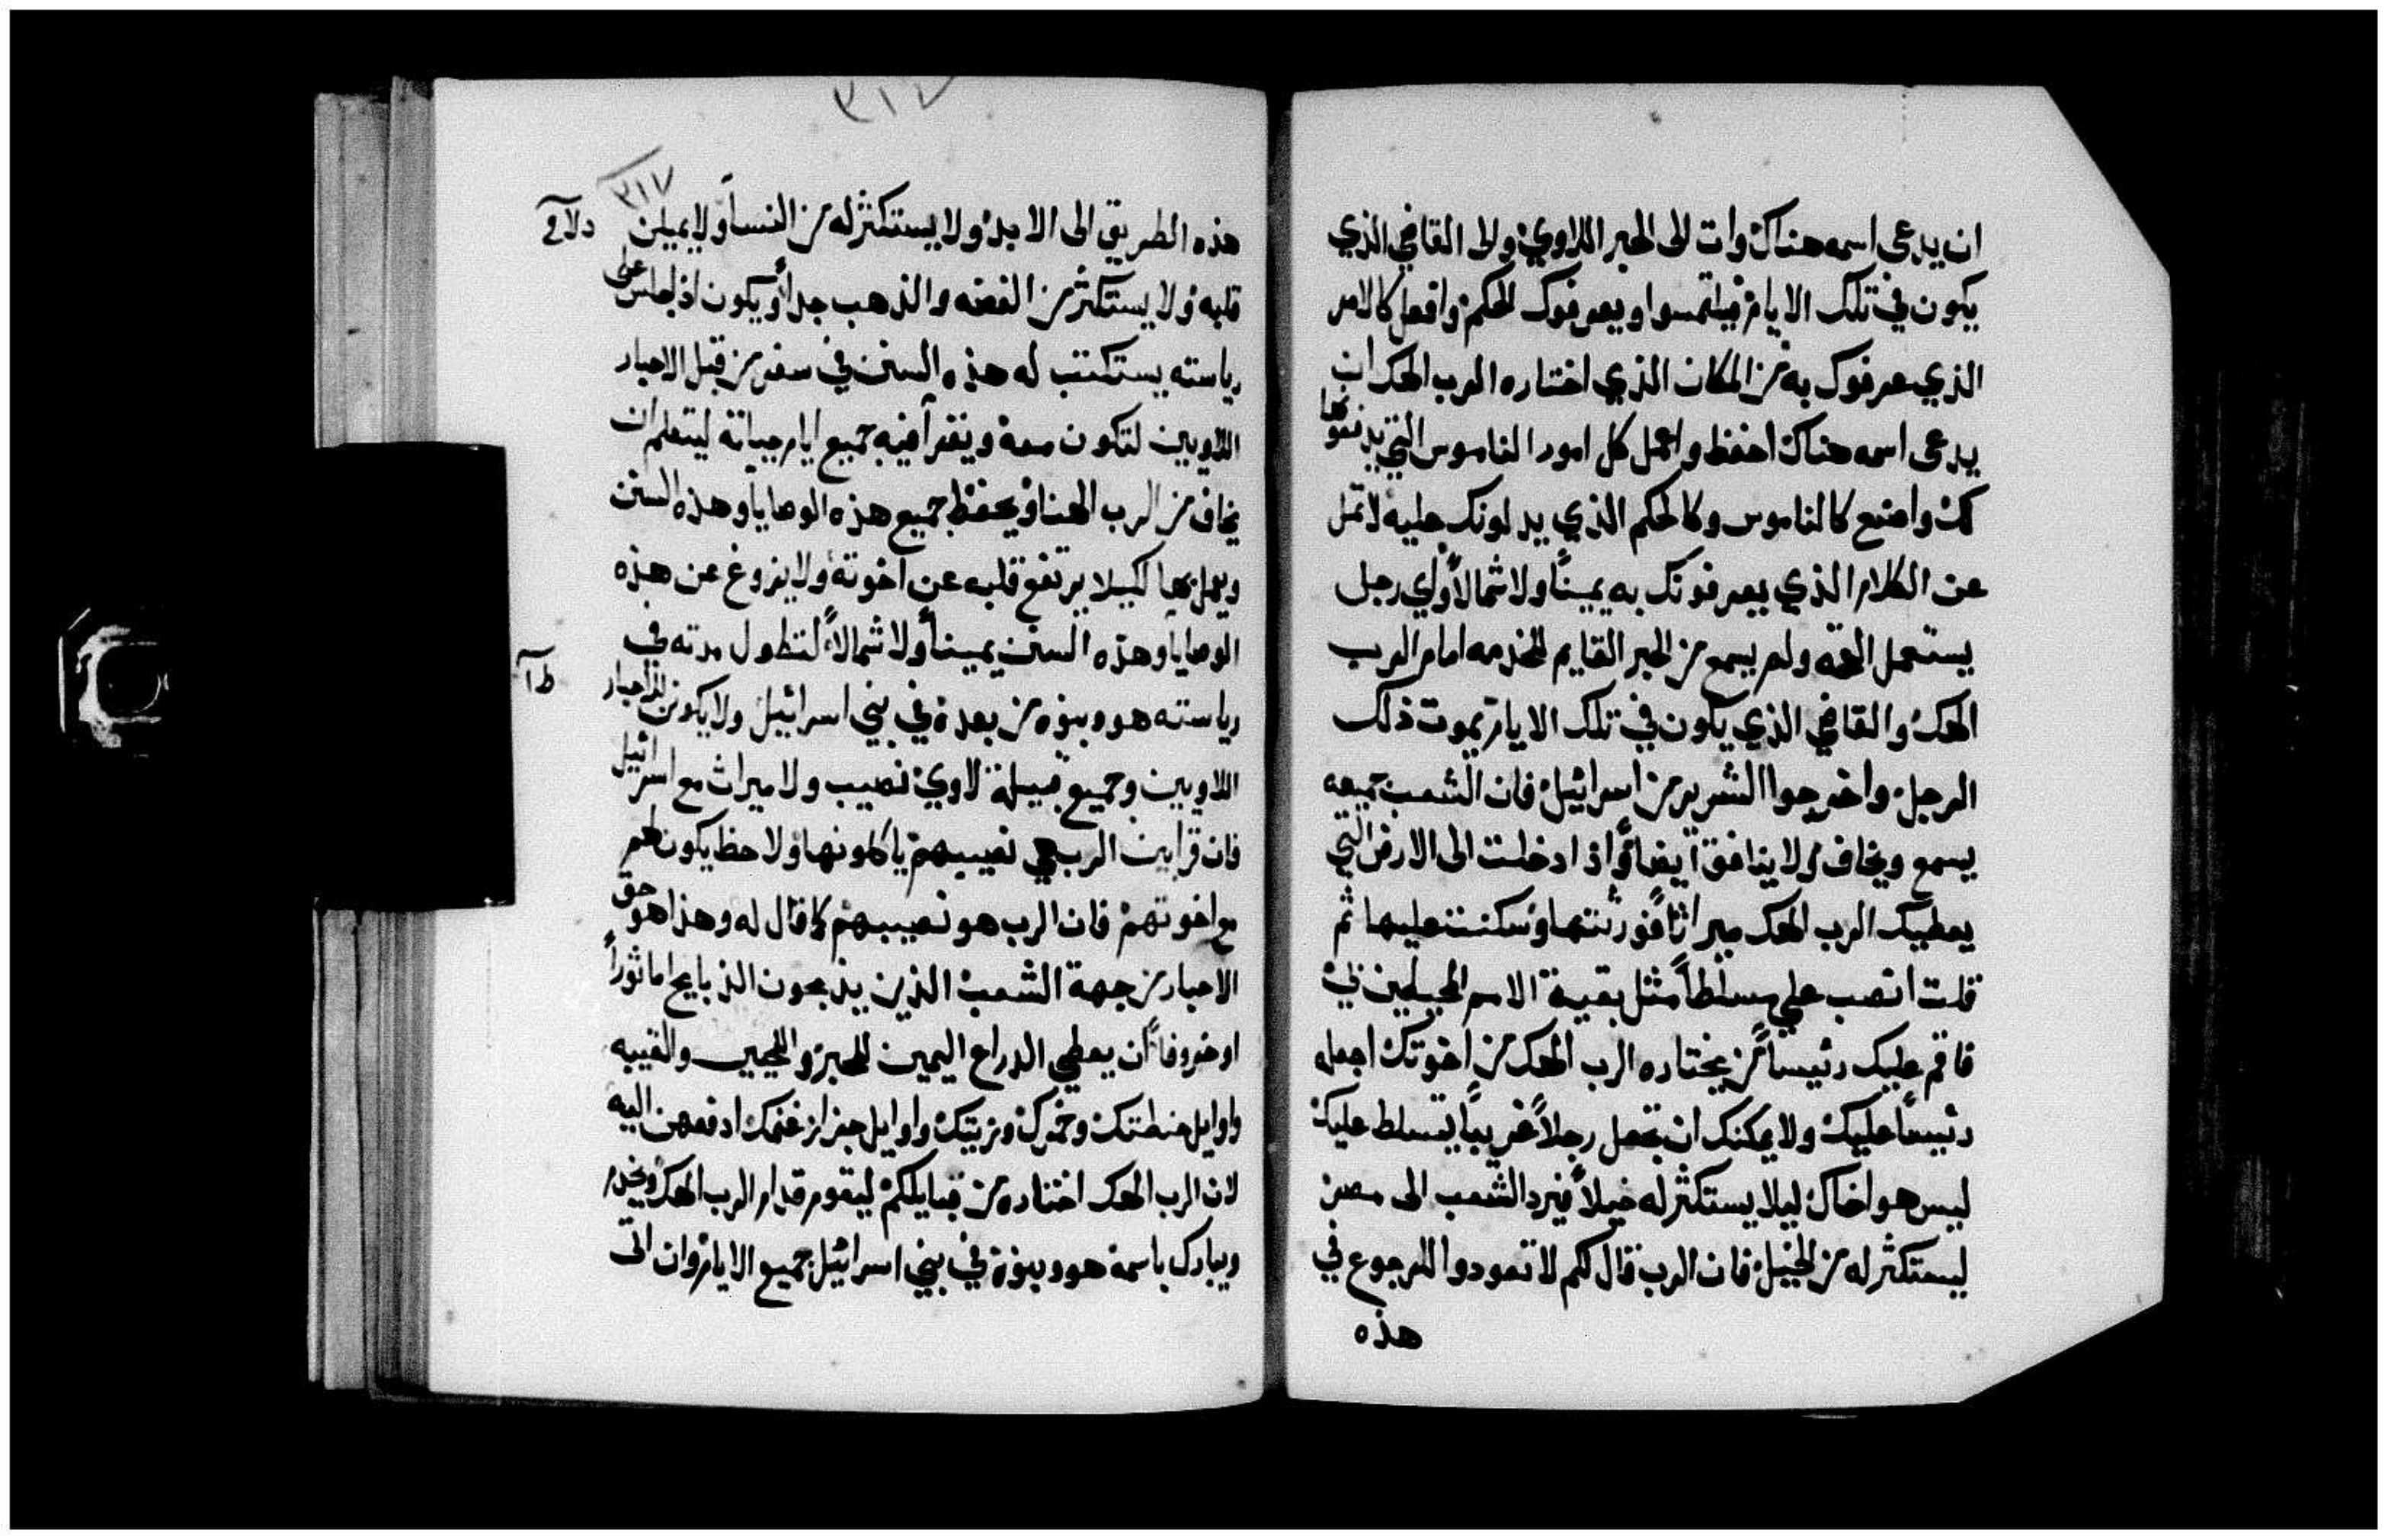 ان يدعى اسمه هناك وات الى الحبر اللاوي والى القاضي الذي
يكون في تلك الايام فيلتمسوا ويعرفوك الحكم وافعل كالامر
الذي عرفوك به من المكان الذي اختاره الرب الهك ان
يدعى اسمه هناك احفظ واعمل كل امور الناموس التي
لك واصنع كالناموس وكالحكم الذي يدلونك عليه لا تمل
عن الكلام الذي يعرفونك به يميناً ولا شمالاً واي رجل
يستعمل القحه ولم يسمع من الحبر القايم للخدمه امام الرب
الهك والقاضي الذي يكون في تلك الايام يموت ذلك
الرجل واخرجوا الشرير من اسرائيل فان الشعب جميعه
يسمع ويخاف ولا ينافق ايضاً واذا دخلت الى الارض التي
يعطيك الرب الهك ميراثاً فورثتها وسكنت عليها ثم
قلت انصب علي مسلطاً مثل بقية الامم المحيطين بي
فاقم عليك رئيساً من يختاره الرب الهك من اخوتك اجعله
رئيساً عليك ولا يمكنك ان تجعل رجلاً غريباً يتسلط عليك
ليس هو اخاك ليلا يستكثر له خيلاً فيرد الشعب الى مصر
ليستكثر له من الخيل فان الرب قال لكم لا تعودوا للرجوع في
هذه
٣١٧
٣١٧
هذه الطريق الى الابد ولا يستكثر له من النسا ولا يميلن
قلبه ولا يستكثر من الفضه والذهب جداً ويكون اذا جلس على
رياسته يستكتب له هذه السنن في سفر من قبل الاحبار
اللاويين لتكون معه ويقرأ فيه جميع ايام حياته ليتعلم ان
يخاف من الرب الهنا ويحفظ جميع هذه الوصايا وهذه السنن
ويعمل بها لكيلا يرتفع قلبه عن اخوته ولا يزوغ عن هذه
الوصايا وهذه السنن يميناً ولا شمالاً لتطول مدته في
رياسته هو وبنوه من بعده في بني اسرائيل ولا يكون للاحبار
اللاويين وجميع قبيلة لاوي نصيب ولا ميراث مع اسرائيل
فان قرابين الرب هي نصيبهم ياكلونها ولا حظ يكون لهم
مع اخوتهم فان الرب هو نصيبهم كما قال له وهذا هو حق
الاحبار من جهة الشعب الذين يذبحون الذبايح اما ثوراً
او خروفاً ان يعطي الدراع اليمين للحبر واللحيين والقيبه
واوايل حنطتك وخمرك وزيتك واوايل جزاز غنمك ادفعهن اليه
لان الرب الهك اختاره من قبايلكم ليقوم قدام الرب الهك ويخدم
ويبارك باسمه هو وبنوه في بني اسرائيل جميع الايام وان اتى